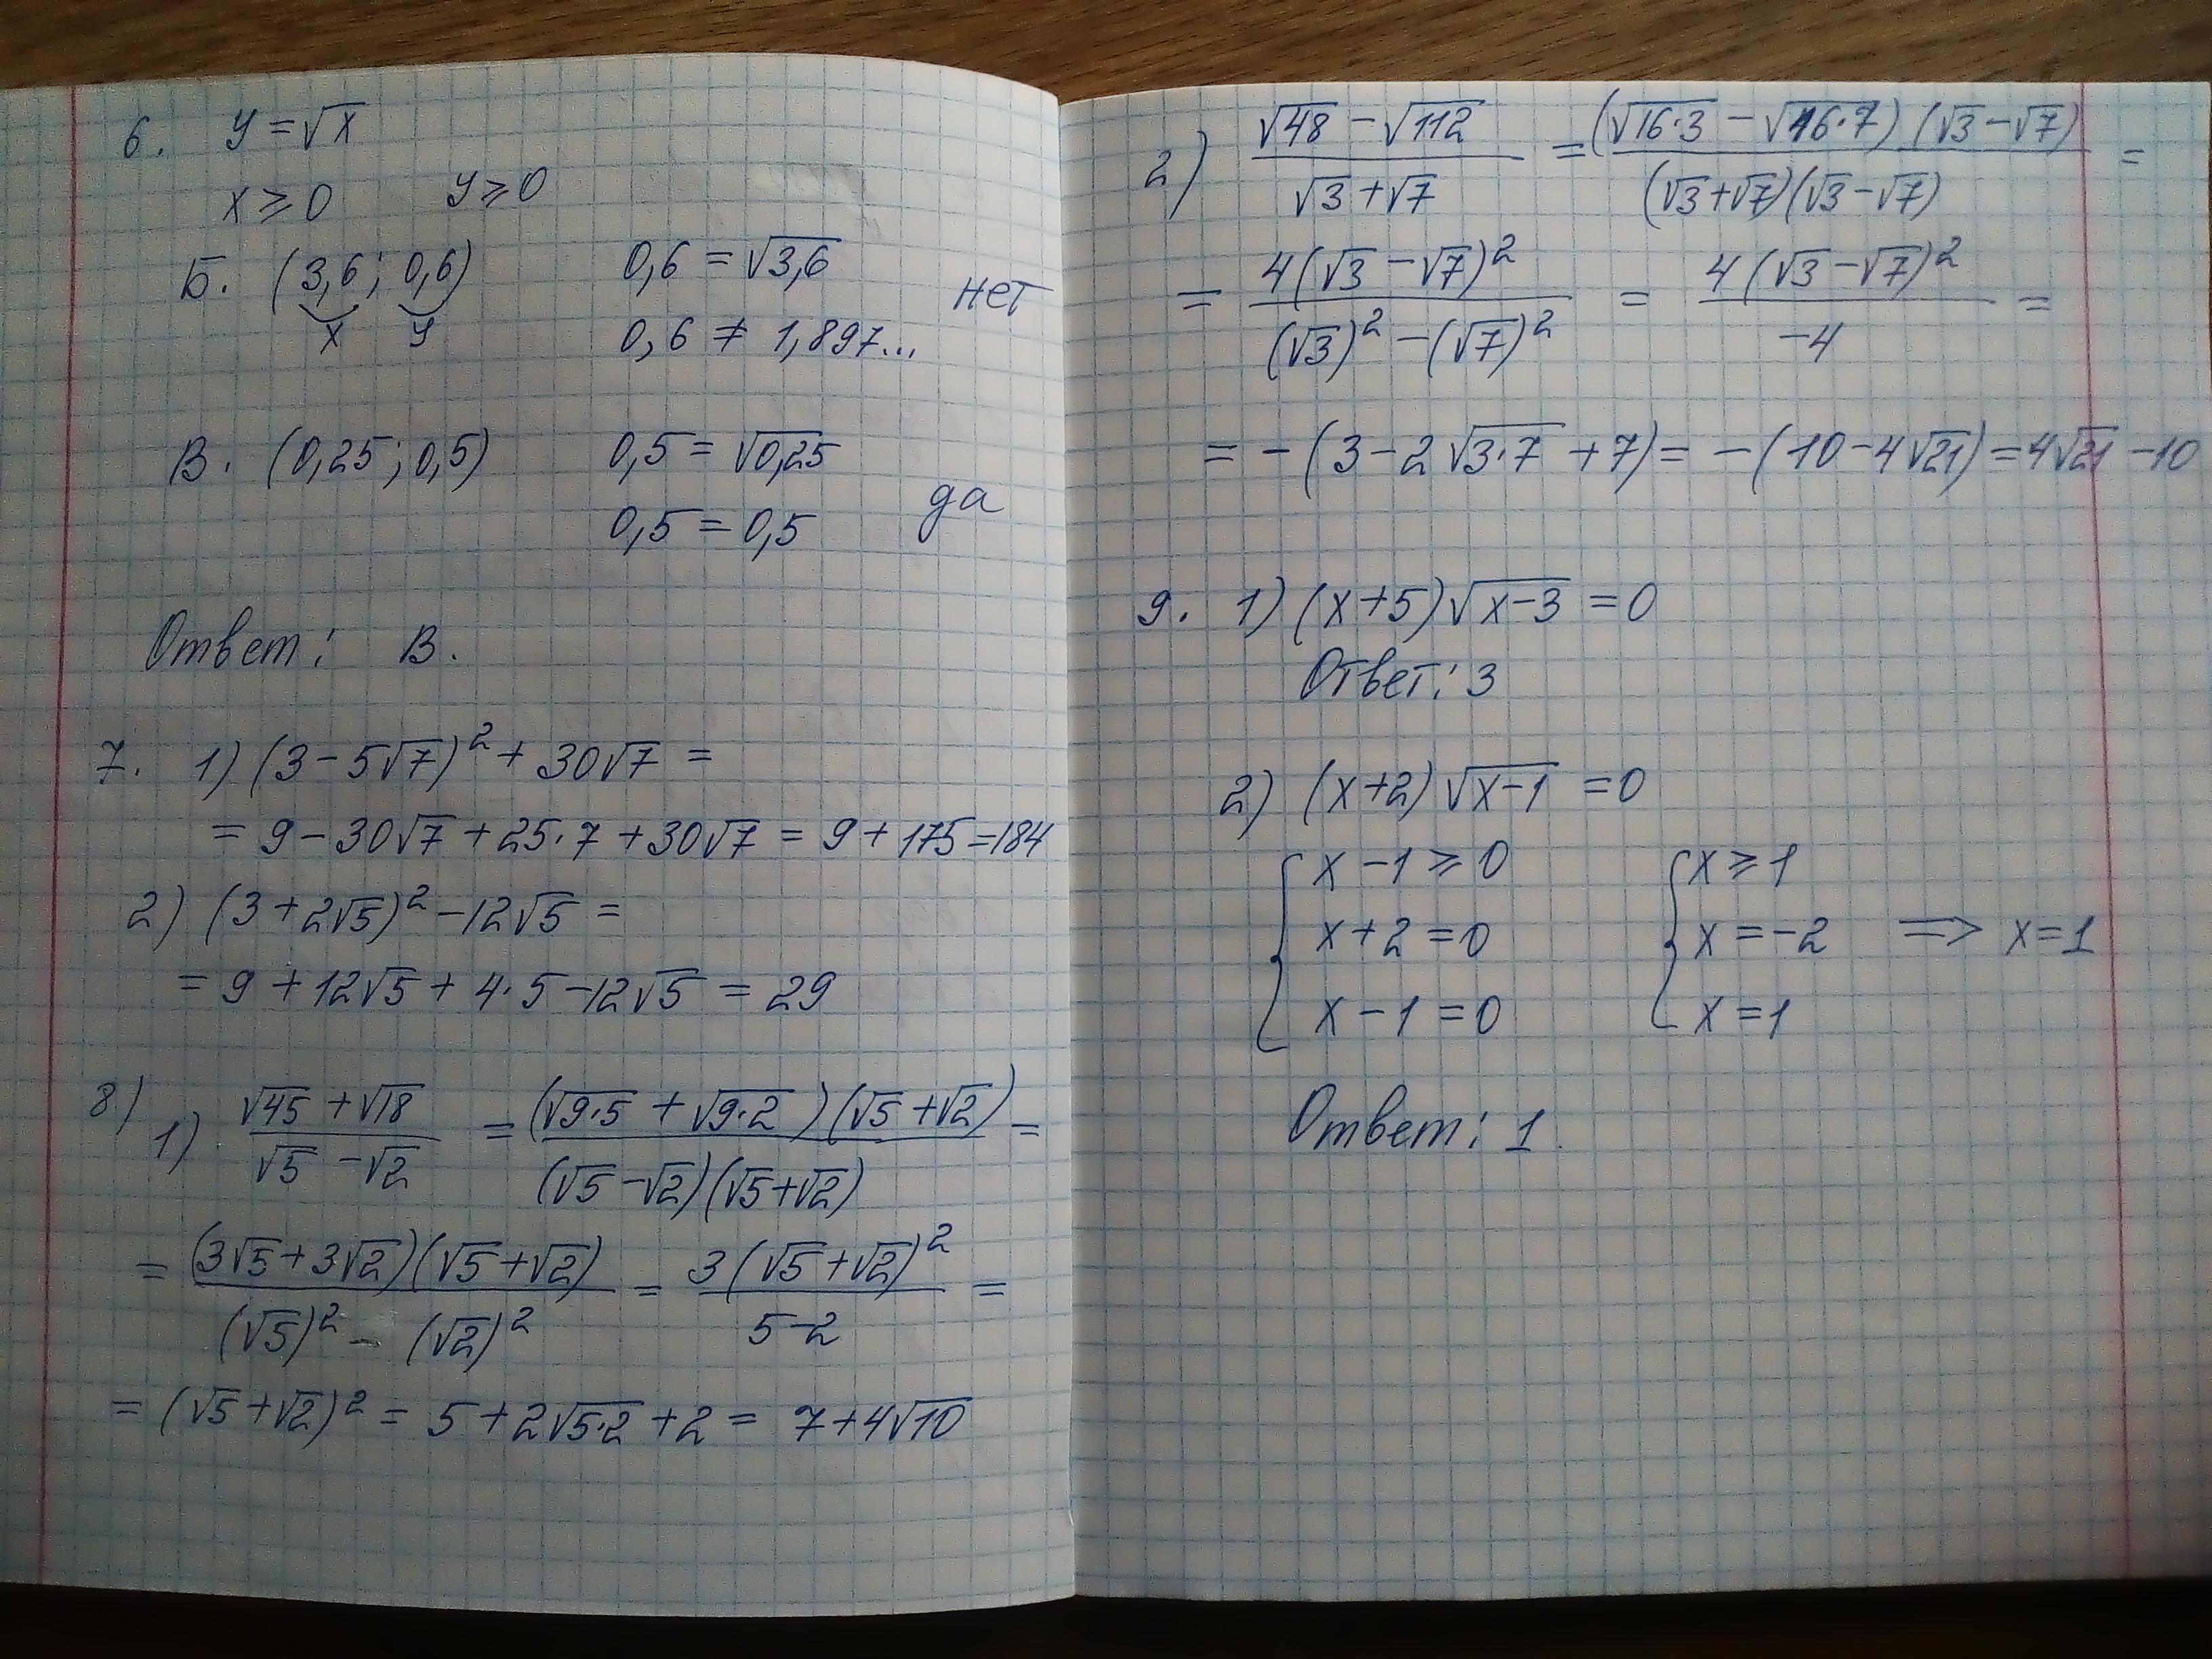 6. y = √x
x ⩾ 0 y ⩾ 0
Б. (3,6 ; 0,6) 0,6 = √3,6
x y 0,6 ≠ 1,897... нет
В. (0,25 ; 0,5) 0,5 = √0,25
0,5 = 0,5 да
Ответ: В.
7. 1) (3 - 5√7)² + 30√7 =
= 9 - 30√7 + 25·7 + 30√7 = 9 + 175 = 184
2) (3 + 2√5)² - 12√5 =
= 9 + 12√5 + 4·5 - 12√5 = 29
8) 1) (√45 + √18)/(√5 - √2) = ((√9·5 + √9·2)(√5 + √2))/((√5 - √2)(√5 + √2)) =
= ((3√5 + 3√2)(√5 + √2))/((√5)² - (√2)²) = (3(√5 + √2)²)/(5 - 2) =
= (√5 + √2)² = 5 + 2√5·2 + 2 = 7 + 4√10
2) (√48 - √112)/(√3 + √7) = ((√16·3 - √16·7)(√3 - √7))/((√3 + √7)(√3 - √7)) =
= (4(√3 - √7)²)/((√3)² - (√7)²) = (4(√3 - √7)²)/(-4) =
= -(3 - 2√3·7 + 7) = -(10 - 4√21) = 4√21 - 10
9. 1) (x + 5)√x-3 = 0
Ответ: 3
2) (x + 2)√x-1 = 0
{ x - 1 ⩾ 0 { x ⩾ 1
x + 2 = 0 x = -2 ⇒ x = 1
x - 1 = 0 x = 1
Ответ: 1.